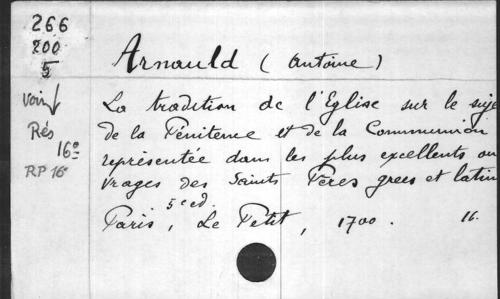 266
200
5
voir
Rés
16º
RP 16º
Arnauld (Antoine)
La tradition de l'Eglise sur le suje
de la Pénitence et de la Communion
représentée dans les plus excellents ou
vrages des Saints Pères grecs et latin
5e ed.
Paris, Le Petit, 1700. 16.